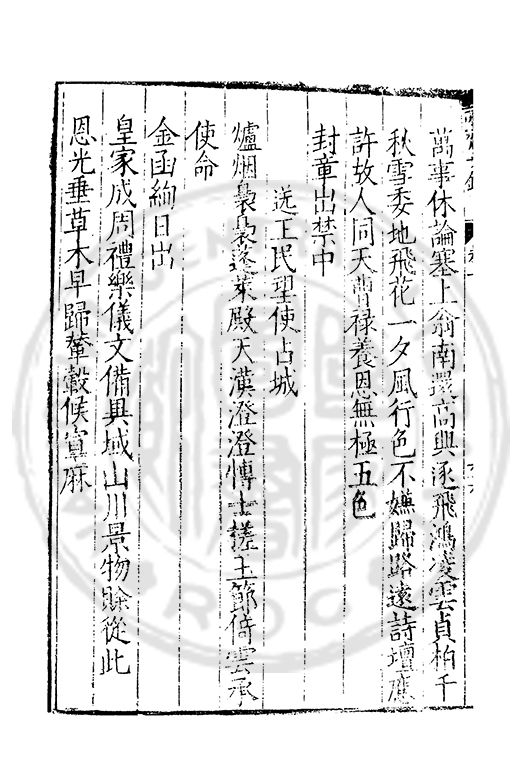 萬事休論塞上翁南還高興逐飛鴻凌雲貞柏千
秋雪委地飛花一夕風行色不嫌歸路遠詩壇應
許故人同天曹禄養恩無極五色
封章出禁中
送王民望使占城
爐烟裊裊蓬萊殿天漢澄澄博士槎玉節倚雲承
使命
金函絢日出
皇家成周禮樂儀文備異域山川景物賖從此
恩光垂草木早歸輦轂候宣麻